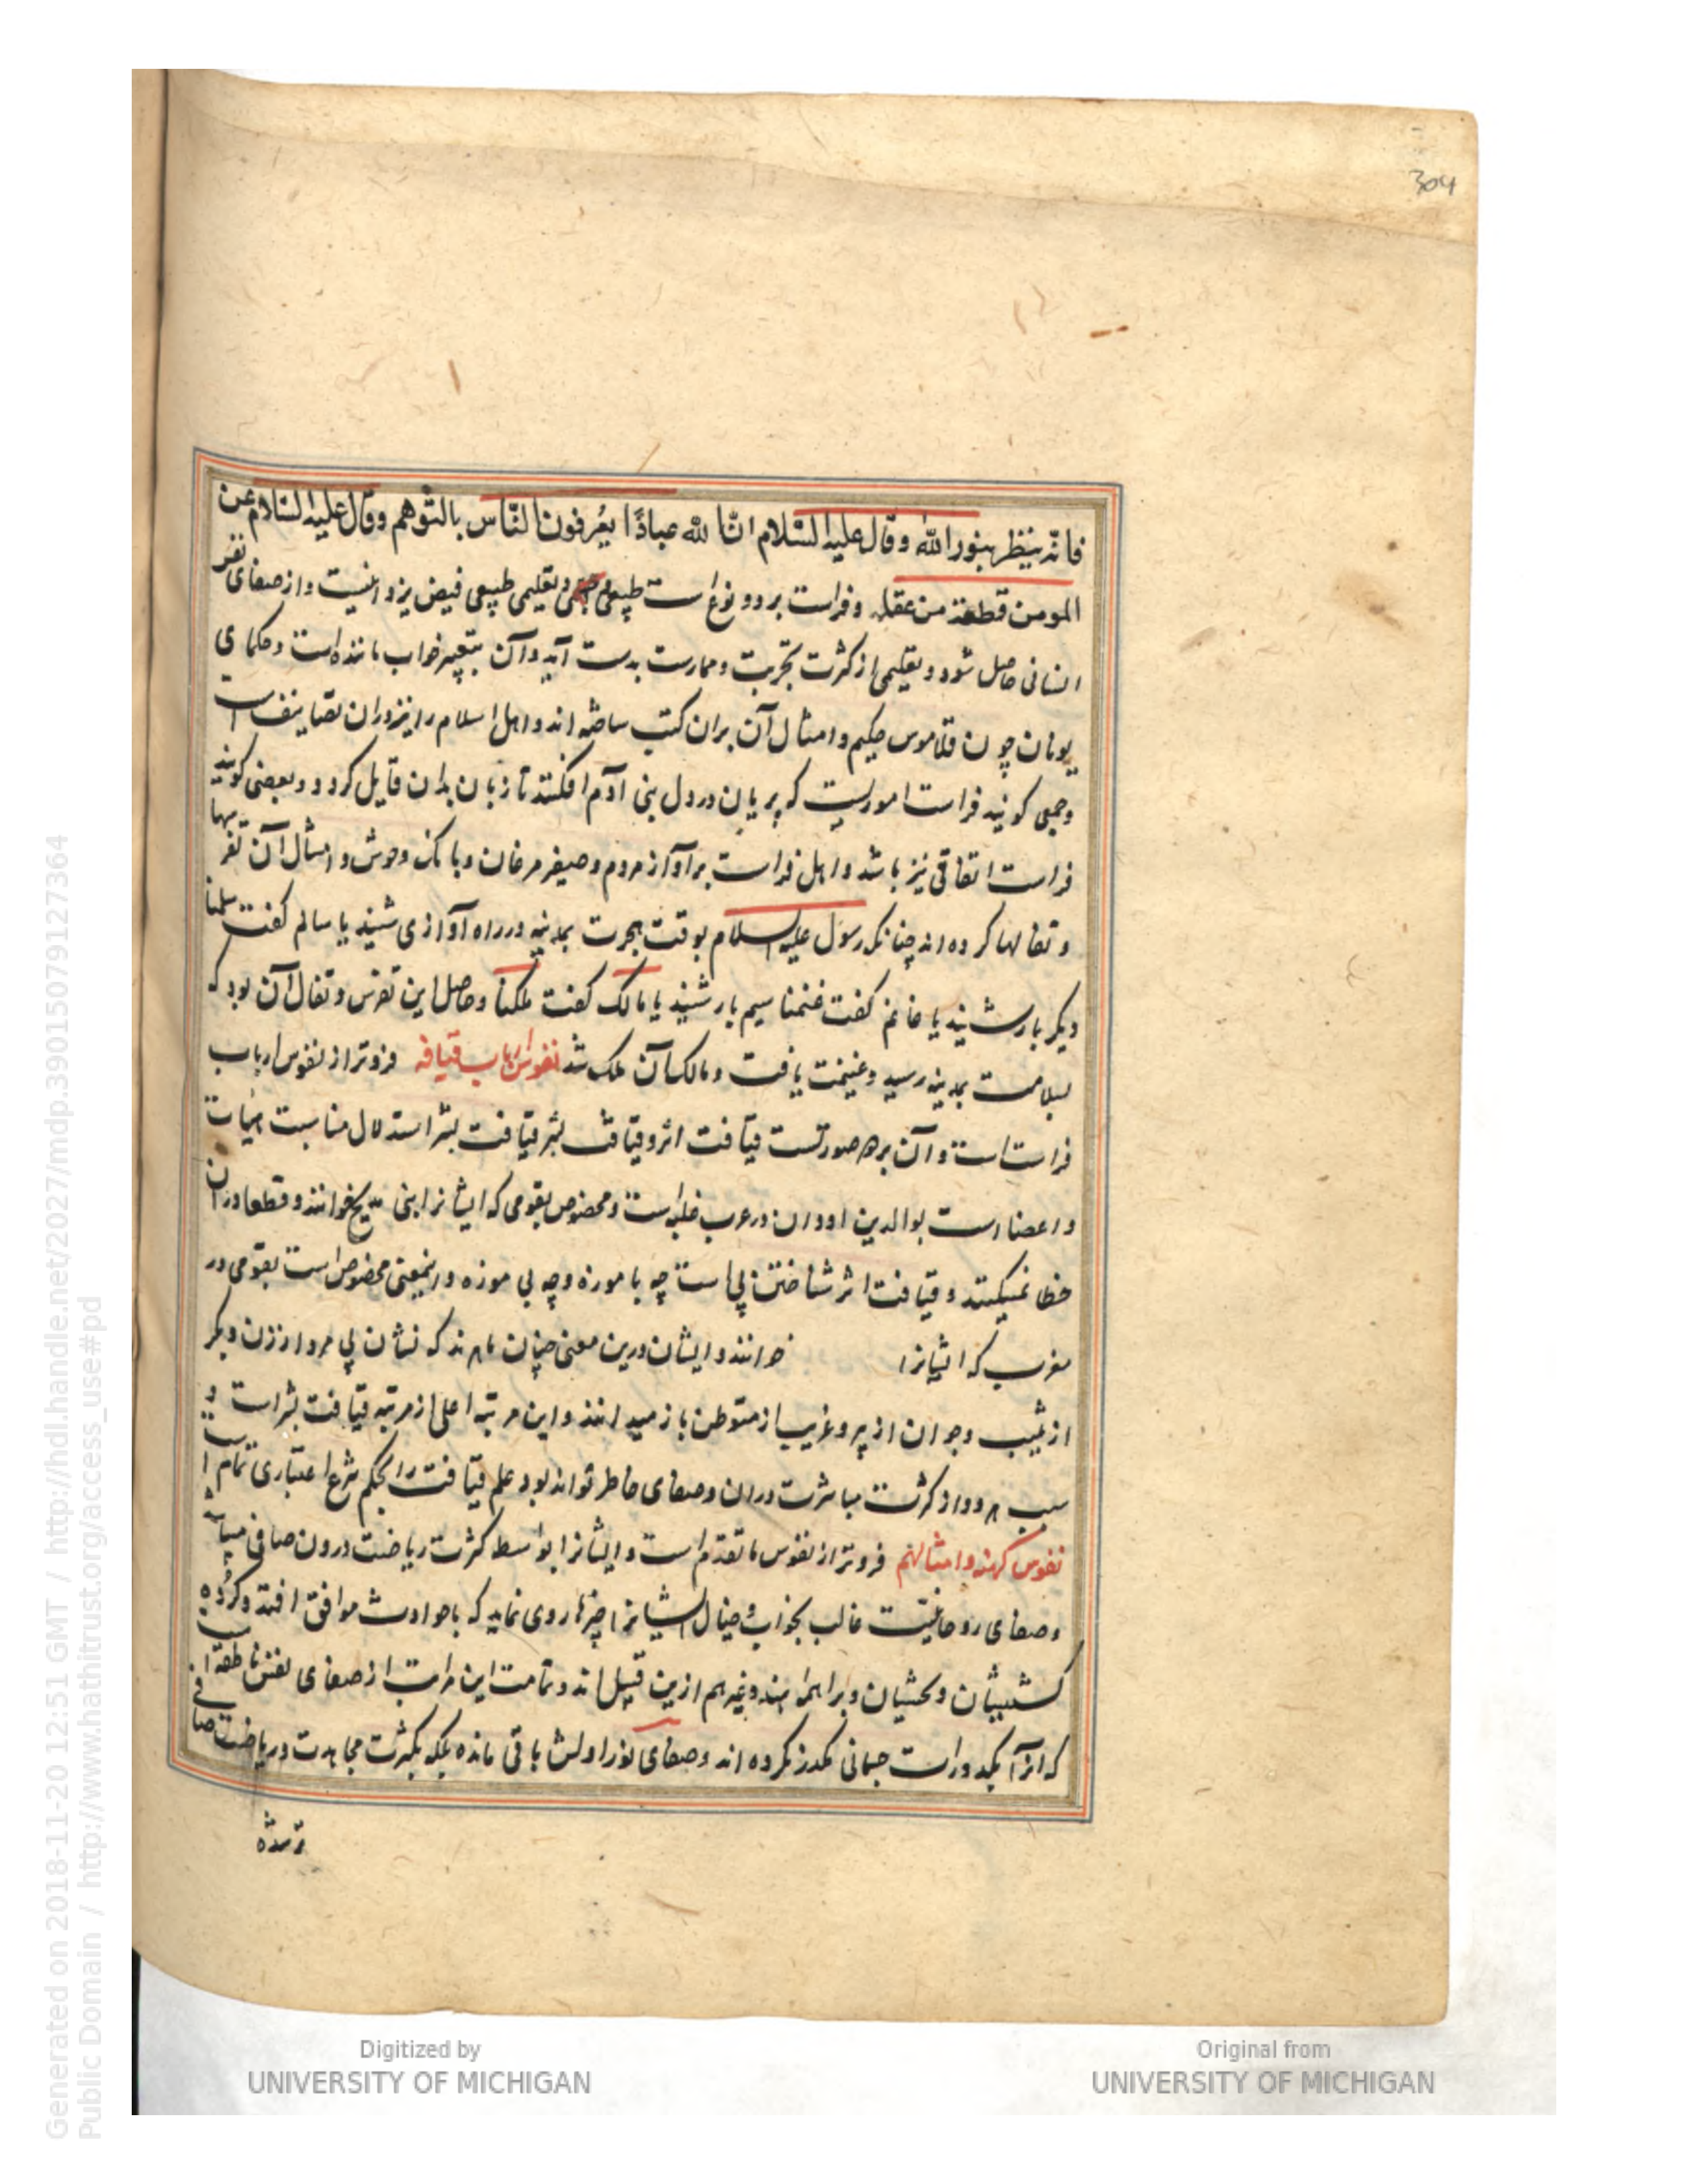 304
فانه ینظر بنور الله وقال علیه السّلام انّ لله عبادًا یعُرفون النّاس بالتّوهم وقال علیه السّلام عن
المومن قطعة من عقله وفراست بر دو نوع است طبیعی وتعلیمی طبیعی فیض یزدانیست واز صفای نفس
انسانی حاصل شود وتعلیمی از کثرت تجربت وممارست بدست آید وآن بتعبیر خواب مانندهاست وحکمای
یونان چون حکیم وامثال آن بران کتب ساخته اند واهل اسلام را نیز دران تصانیف است
وجمعی کویند فراست اموریست که پریان در دل بنی آدم افکنند تا زبان بدان قایل کردد وبعضی کویند
فراست اتفاقی نیز باشد واهل فراست بر آواز مردم وصفیر مرغان وبانک وحوش وامثال آن تفرسها
وتفالها کرده اند چنانکه رسول علیه السلام بوقت هجرت بمدینه در راه آوازی شنید یا سالم کفت سلمنا
دیکر بار شنید یا غانم کفت غنمنا سیم بار شنید یا مالک کفت ملکنا وحاصل این تفرس وتفال آن بود که
بسلامت بمدینه رسید وغنیمت یافت ومالک آن ملک شد نفوس ارباب قیافه فروتر از نفوس ارباب
فراست است وآن بر دو صورتست قیافت اثر وقیافت بشر قیافت بشر استدلال مناسبت هیات
واعضا است بوالدین او وان در عرب غلبه است ومخصوص بقومی که ایشانرا بنی مدلج خوانند وقطعا دران
خطا نمیکنند وقیافت اثر شناختن پی است چه با موزه وچه بی موزه واینمعنی مخصوص است بقومی در
مغرب که ایشانرا خوانند وایشان درین معنی چنان ماهرند که نشان پی مرد از زن وبکر
از ثیب وجوان از پیر وغریب از متوطن باز میدانند واین مرتبه اعلی از مرتبه قیافت بشر است و
سبب هر دو از کثرت مباشرت دران وصفای خاطر تواند بود علم قیافت را بحکم شرع اعتباری تمام است
نفوس کهنه وامثالهم فروتر از نفوس ما تقدم است وایشانرا بواسطه کثرت ریاضت درون صافی میباشد
وصفای روحانیت غالب بخواب وخیال ایشانرا چیزها روی نماید که با حوادث موافق افتد وکروه
کشیشان وبخشیان وبراهمه هند وغیرهم ازین قبیل اند وتمامت این مراتب از صفای نفس ناطقه است
که انرا بکدورات جسمانی مکدر نکرده اند وصفای نور اولش باقی مانده بلکه بکثرت مجاهدت وریاضت صافی
ترشده
Digitized by
UNIVERSITY OF MICHIGAN
Original from
UNIVERSITY OF MICHIGAN
Generated on 2018-11-20 12:51 GMT / http://hdl.handle.net/2027/mdp.39015079127364
Public Domain / http://www.hathitrust.org/access_use#pd